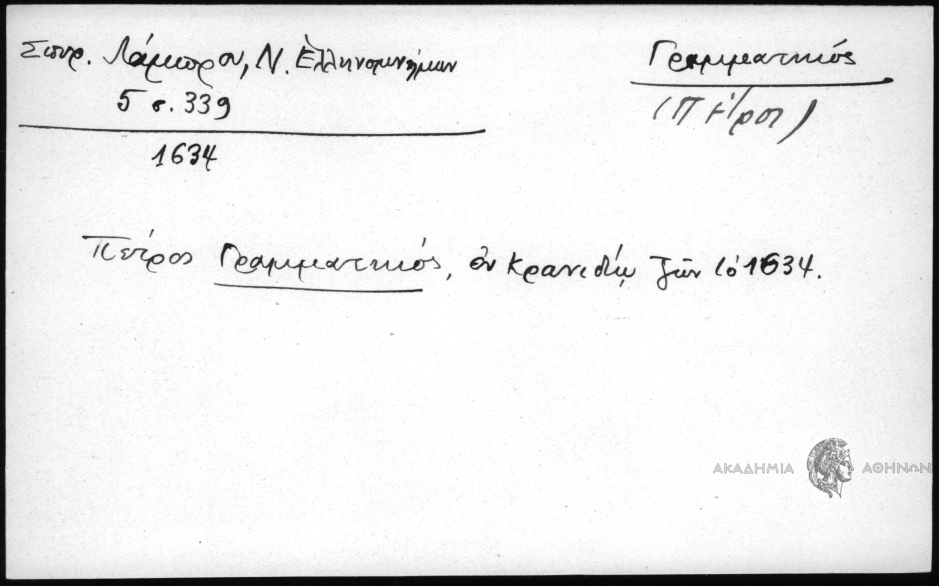 Σπυρ. Λάμπρου, Ν. Ἑλληνομνήμων
5 σ. 339
1634
Γραμματικός
(Πέτρος)
Πέτρος Γραμματικός, ἐν Κρανιδίῳ ζῶν τὸ 1634.
ΑΚΑΔΗΜΙΑ ΑΘΗΝΩΝ